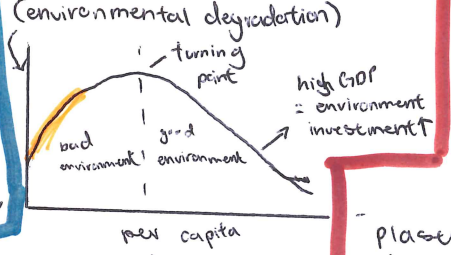 (environmental degradation)
turning
point
high GDP
= environment
investment↑
bad
environment
good
environment
per capita
- plast